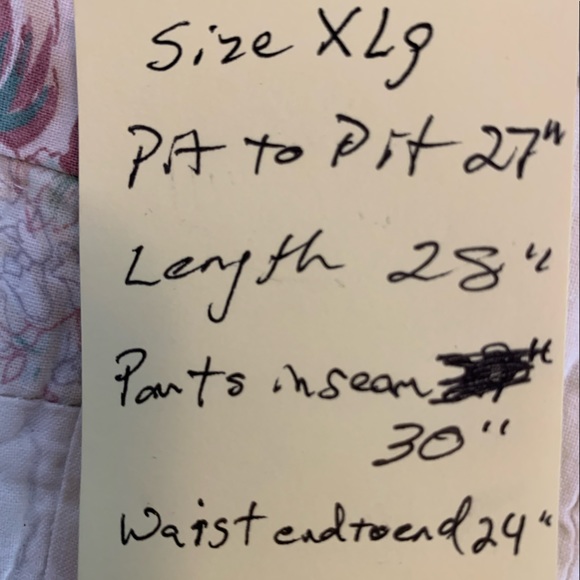 Size XLg
Pit to Pit 27"
Length 28"
Pants inseam "
30"
Waist end to end 24"